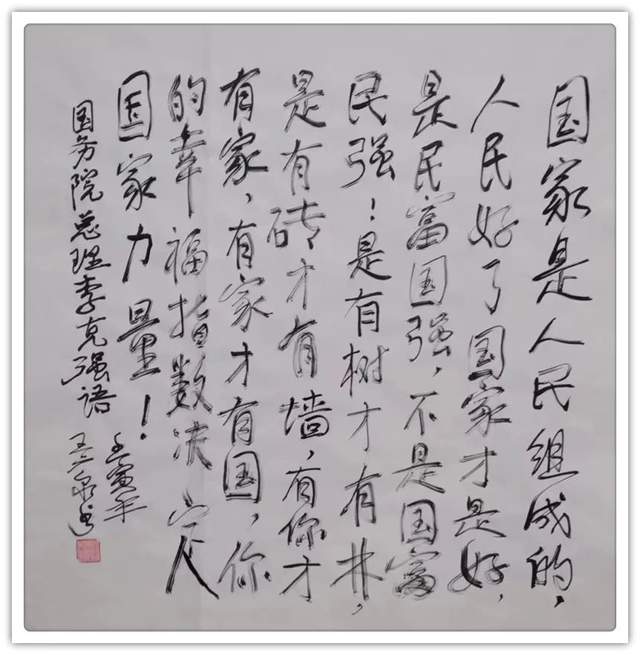 国家是人民组成的，
人民好了国家才是好，
是民富国强，不是国富
民强！是有树才有林，
是有砖才有墙，有你才
有家，有家才有国，你
的幸福指数决定
国家力量！
国务院总理李克强语
壬寅年